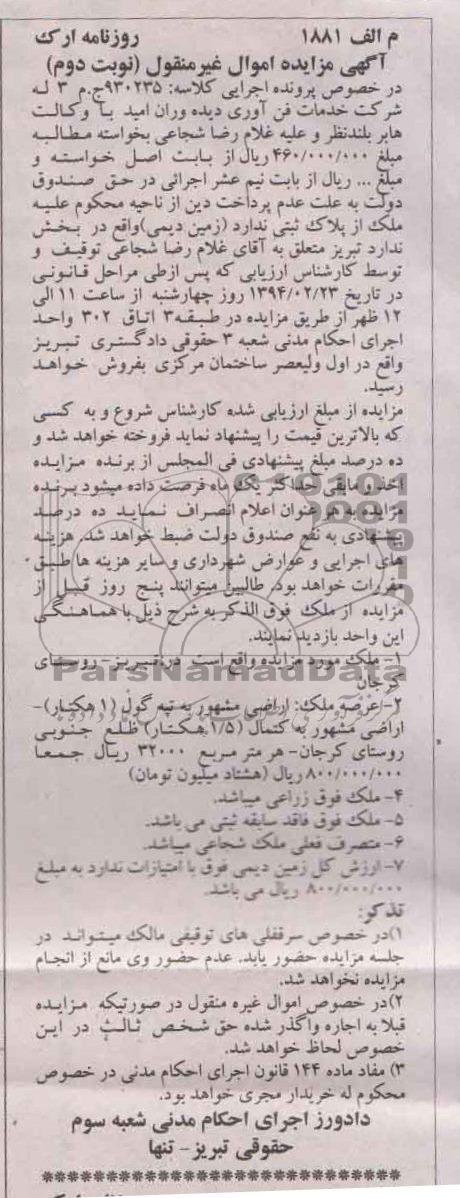 م الف ۱۸۸۱ روزنامه ارک
آگهی مزایده اموال غیرمنقول (نوبت دوم)
در خصوص پرونده اجرایی کلاسه: ۹۳۰۲۳۵ج.م ۳ له
شرکت خدمات فن آوری دیده وران امید با وکالت
هابر بلندنظر و علیه غلام رضا شجاعی بخواسته مطالبه
مبلغ ۴۶۰/۰۰۰/۰۰۰ ریال از بابت اصل خواسته و
مبلغ ... ریال از بابت نیم عشر اجرائی در حق صندوق
دولت به علت عدم پرداخت دین از ناحیه محکوم علیه
ملک از پلاک ثبتی ندارد (زمین دیمی)واقع در بخش
ندارد تبریز متعلق به آقای غلام رضا شجاعی توقیف و
توسط کارشناس ارزیابی که پس ازطی مراحل قانونی
در تاریخ ۱۳۹۴/۰۲/۲۳ روز چهارشنبه از ساعت ۱۱ الی
۱۲ ظهر از طریق مزایده در طبقه۳ اتاق ۳۰۲ واحد
اجرای احکام مدنی شعبه ۳ حقوقی دادگستری تبریز
واقع در اول ولیعصر ساختمان مرکزی بفروش خواهد
رسید.
مزایده از مبلغ ارزیابی شده کارشناس شروع و به کسی
که بالاترین قیمت را پیشنهاد نماید فروخته خواهد شد و
ده درصد مبلغ پیشنهادی فی المجلس از برنده مزایده
اخذ و مابقی حداکثر یک ماه فرصت داده میشود برنده
مزایده به هر عنوان اعلام انصراف نماید ده درصد
پیشنهادی به نفع صندوق دولت ضبط خواهد شد. هزینه
های اجرایی و عوارض شهرداری و سایر هزینه ها طبق
مقررات خواهد بود. طالبین میتوانند پنج روز قبل از
مزایده از ملک فوق الذکر به شرح ذیل با هماهنگی
این واحد بازدید نمایند.
۱- ملک مورد مزایده واقع است در:تبریز-روستای
کرجان
۲-عرضه ملک: اراضی مشهور به تپه گول (۱ هکتار)-
اراضی مشهور به کتمال (۱/۵ هکتار) ظلع جنوبی
روستای کرجان- هر متر مربع ۳۲۰۰۰ ریال جمعا
۸۰۰/۰۰۰/۰۰۰ ریال (هشتاد میلیون تومان)
۴- ملک فوق زراعی میباشد.
۵- ملک فوق فاقد سابقه ثبتی می باشد.
۶- متصرف فعلی ملک شجاعی میباشد.
۷- ارزش کل زمین دیمی فوق با امتیازات ندارد به مبلغ
۸۰۰/۰۰۰/۰۰۰ ریال می باشد.
تذکو:
۱)در خصوص سرقفلی های توقیفی مالک میتواند در
جلسه مزایده حضور یابد. عدم حضور وی مانع از انجام
مزایده نخواهد شد.
۲)در خصوص اموال غیره منقول در صورتیکه مزایده
قبلا به اجاره واگذر شده حق شخص ثالث در این
خصوص لحاظ خواهد شد.
۳) مفاد ماده ۱۴۴ قانون اجرای احکام مدنی در خصوص
محکوم له خریدار مجری خواهد بود.
دادورز اجرای احکام مدنی شعبه سوم
حقوقی تبریز - تنها
ParsNamadData